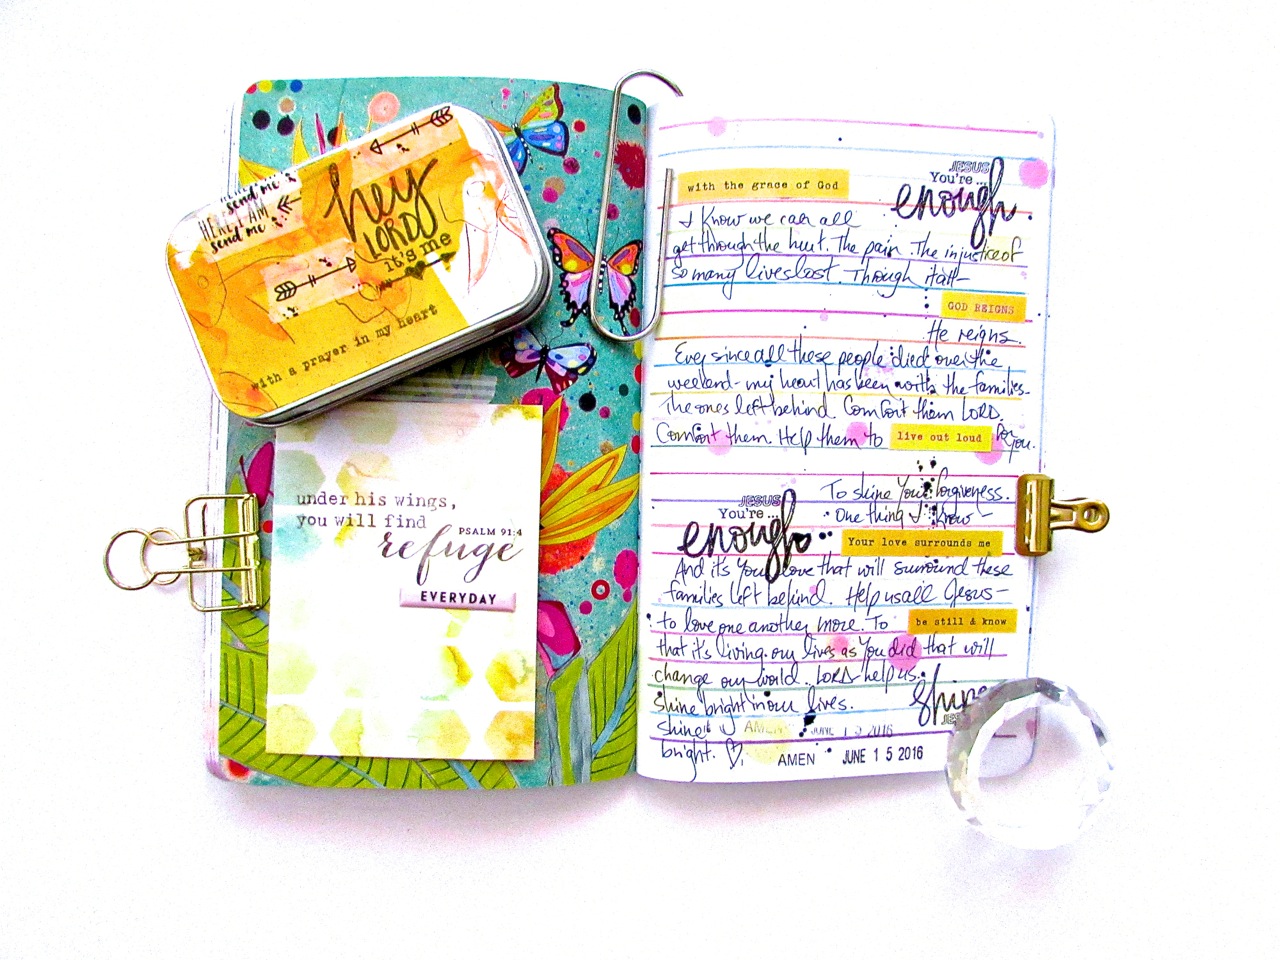 send me
HERE I AM
send me
hey
LORD
it's me
with a prayer in my heart
under his wings,
you will find
PSALM 91:4
refuge
EVERYDAY
with the grace of God
JESUS
You're...
enough.
I know we can all
get through the hurt. The pain. The injustice of
so many lives lost. Though it all
GOD REIGNS
He reigns.
Ever since all these people died over the
weekend - my heart has been with the families.
The ones left behind. Comfort them LORD.
Comfort them. Help them to live out loud for you.
To shine Your forgiveness.
One thing I know -
JESUS
You're...
enough
Your love surrounds me
And it's Your love that will surround these
families left behind. Help us all Jesus -
to love one another more. To be still & know
that it's living our lives as You did that will
change our world. LORD help us.
shine bright in our lives.
shine
JES
shine it
AMEN JUNE 15 2016
bright. ♡.
AMEN JUNE 15 2016